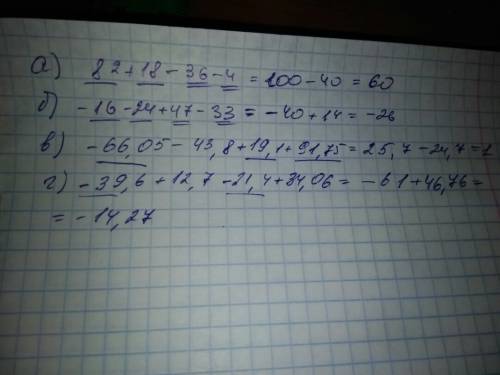 а) 82+18-36-4 = 100-40 = 60
б) -16-24+47-33 = -40+14 = -26
в) -66,05-43,8+19,1+91,75 = 25,7-24,7 = 1
г) -39,6+12,7-21,4+34,06 = -61+46,76 =
= -14,27